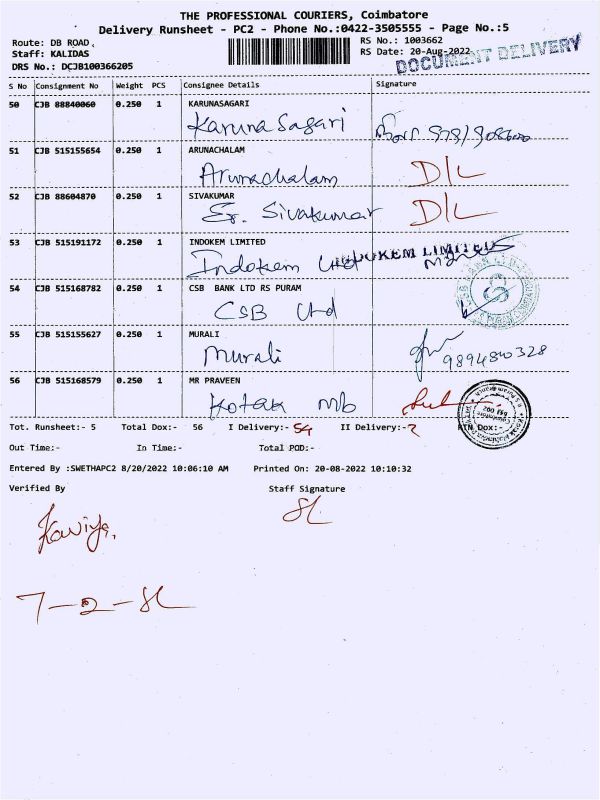 THE PROFESSIONAL COURIERS, Coimbatore
Delivery Runsheet - PC2 - Phone No.:0422-3505555 - Page No.:5
Route: DB ROAD, RS No.: 1003662
Staff: KALIDAS RS Date: 20-Aug-2022
DOCUMENT DELIVERY
DRS No.: DCJB100366205
S No Consignment No Weight PCS Consignee Details Signature
50 CJB 88840060 0.250 1 KARUNASAGARI
Karuna Sagari
51 CJB 515155654 0.250 1 ARUNACHALAM
Arunachalam D/L
52 CJB 88604870 0.250 1 SIVAKUMAR
Er. Sivakumar D/L
53 CJB 515191172 0.250 1 INDOKEM LIMITED
Indokem Ltd INDOKEM LIMITED
54 CJB 515168782 0.250 1 CSB BANK LTD RS PURAM
CSB Ltd
55 CJB 515155627 0.250 1 MURALI
Murali 9894840328
56 CJB 515168579 0.250 1 MR PRAVEEN
Kotak mb
Tot. Runsheet:- 5 Total Dox:- 56 I Delivery:- 54 II Delivery:-2 RTN Dox:-
Out Time:- In Time:- Total POD:-
Entered By :SWETHAPC2 8/20/2022 10:06:10 AM Printed On: 20-08-2022 10:10:32
Verified By Staff Signature
Kaviya.
7-2-SL